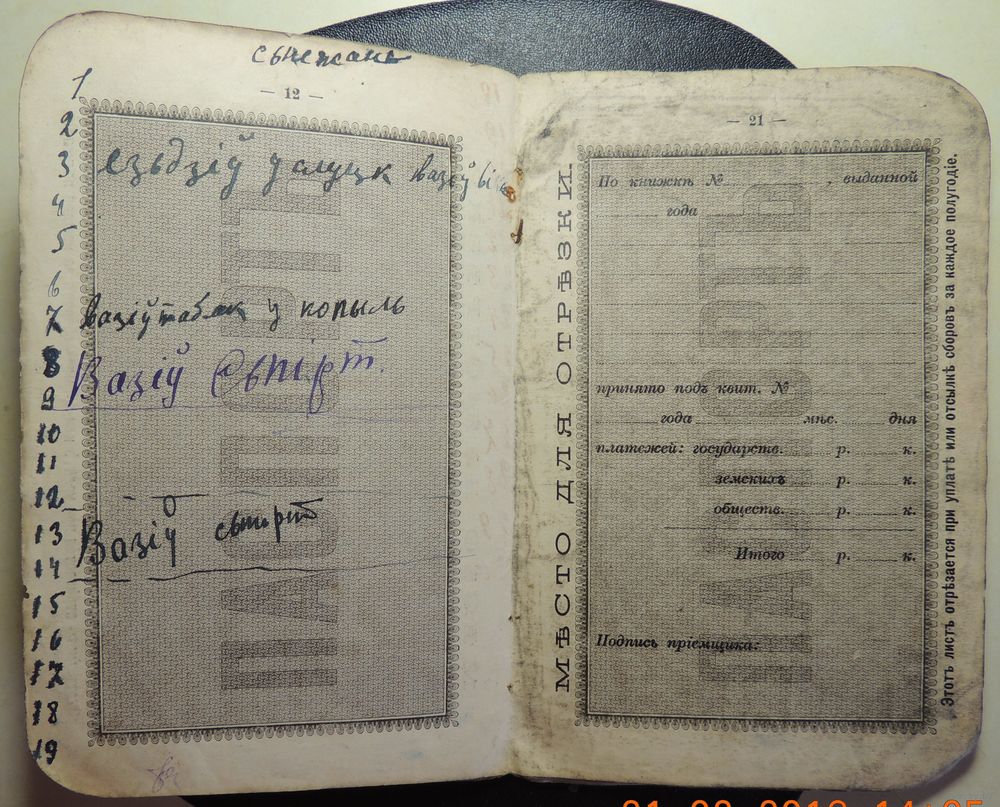 сьнежань
— 12 —
1
2
3 езьдзіў у слуцк вазіў
4
5
6
7 вазіў табак у копыль
8 Вазіў Сьпірт.
9
10
11
12
13 Вазіў сьпірт
14
15
16
17
18
19
ПАСПОРТЪ
МѢСТО ДЛЯ ОТРѢЗКИ
— 21 —
По книжкѣ № , выданной
года
принято подъ квит. №
года мѣс. дня
платежей: государств. р. к.
земскихъ р. к.
обществ. р. к.
Итого р. к.
Подпись пріемщика:
ПАСПОРТЪ
Этотъ листъ отрѣзается при уплатѣ или отсылкѣ сборовъ за каждое полугодіе.